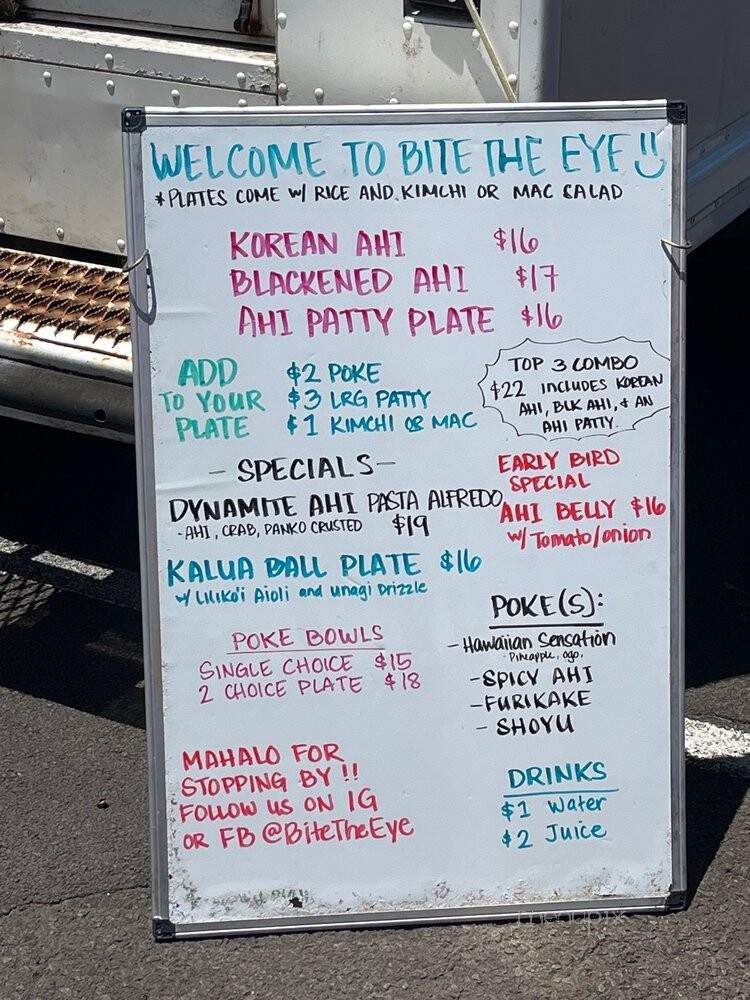 WELCOME TO BITE THE EYE !!
*PLATES COME W/ RICE AND KIMCHI OR MAC SALAD
KOREAN AHI $16
BLACKENED AHI $17
AHI PATTY PLATE $16
ADD TO YOUR PLATE
$2 POKE
$3 LRG PATTY
$1 KIMCHI OR MAC
TOP 3 COMBO
$22 INCLUDES KOREAN
AHI, BLK AHI, & AN
AHI PATTY.
- SPECIALS -
DYNAMITE AHI PASTA ALFREDO
- AHI, CRAB, PANKO CRUSTED $19
EARLY BIRD
SPECIAL
AHI BELLY $16
w/ Tomato/onion
KALUA BALL PLATE $16
w/ Liliko'i Aioli and unagi Drizzle
POKE BOWLS
SINGLE CHOICE $15
2 CHOICE PLATE $18
POKE(S):
- Hawaiian Sensation
Pineapple, ogo,
- SPICY AHI
- FURIKAKE
- SHOYU
MAHALO FOR
STOPPING BY !!
FOLLOW US ON IG
OR FB @BiteTheEye
DRINKS
$1 Water
$2 Juice
menupix